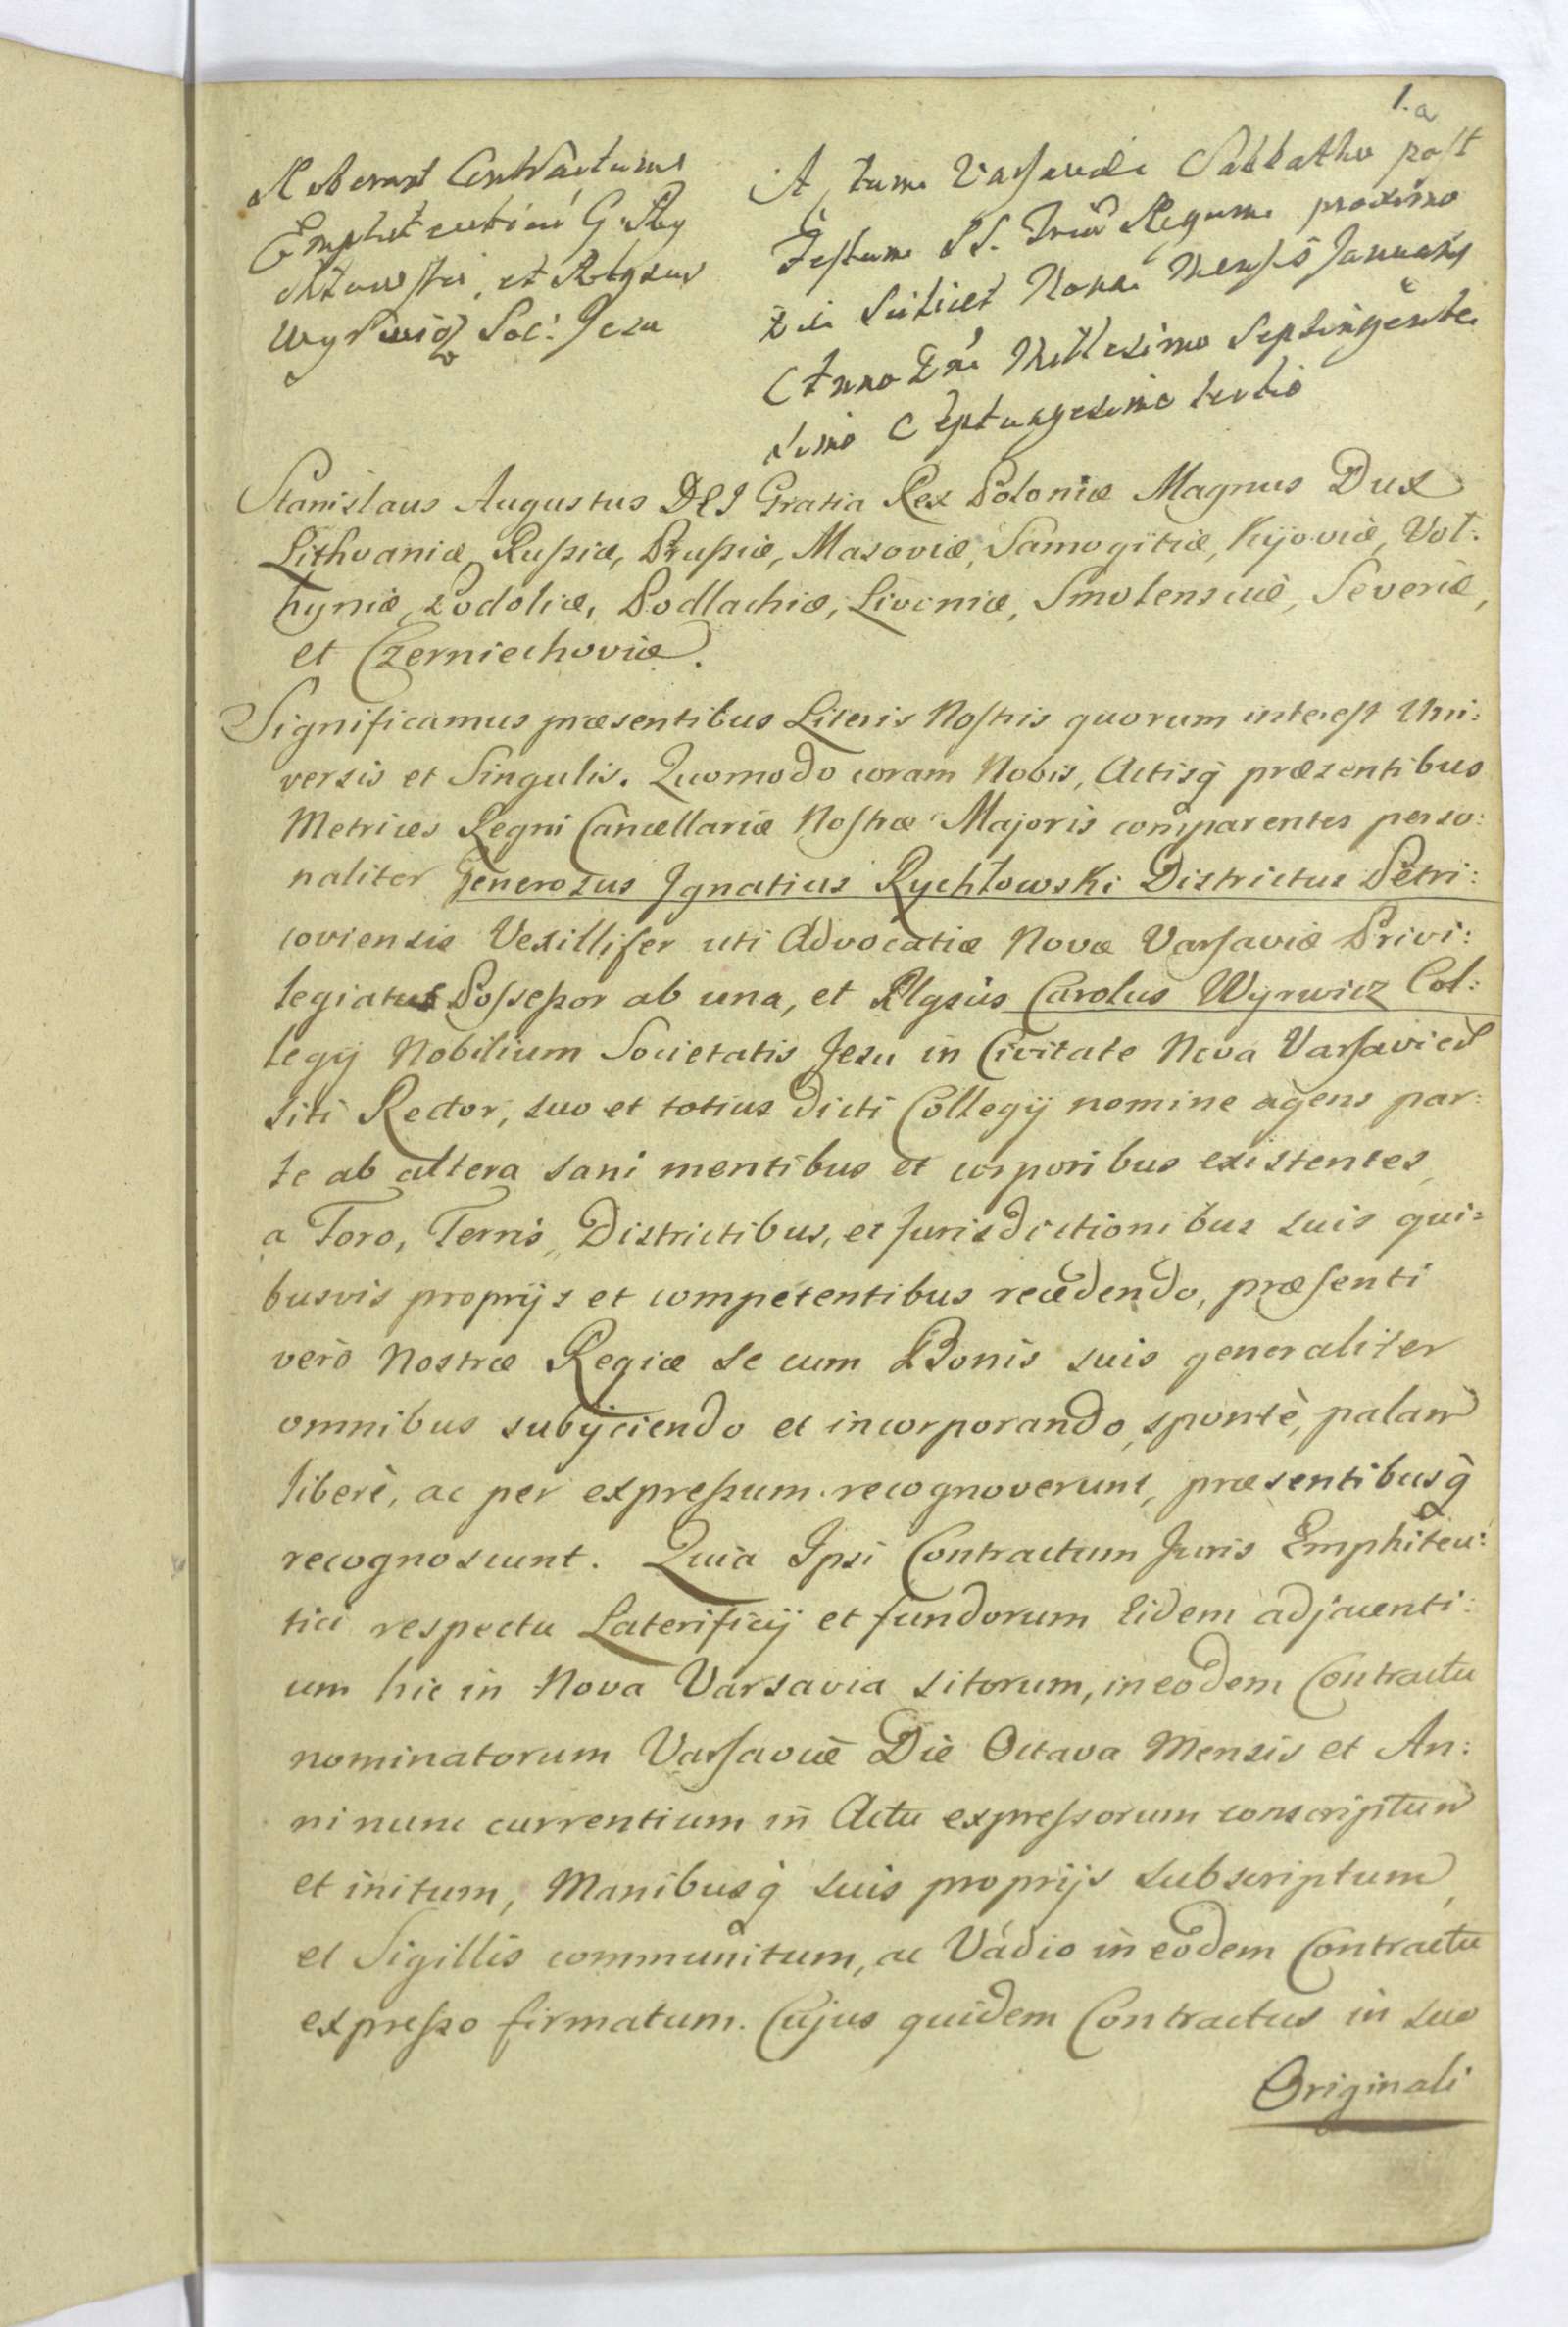 1.a
Roborant Contractum
Emphiteutici G. Ry
chłowski, et Rlgsus
Wyrwicz Soc: Jezu
Actum Varsaviæ Sabbatho post
Festum SS. Trium Regum proximo
Die Scilicet Nona Mensis Januarij
Anno Dni Millesimo Septingente
simo Septuagesimo tertio
Stanislaus Augustus DEI Gratia Rex Poloniæ Magnus Dux
Lithvaniæ, Rußiæ, Prußiæ, Masoviæ, Samogitiæ, Kijoviæ, Vol:
hyniæ, Podoliæ, Podlachiæ, Livoniæ, Smolensciæ, Severiæ,
et Czerniechoviæ.
Significamus præsentibus Literis Nostris quorum interest Uni:
versis et Singulis. Quomodo coram Nobis, Actisq̃ præzentibus
Metrices Regni Cancellariæ Nostræ Majoris comparentes perso:
naliter Generosus Ignatius Rychłowski Districtus Petri:
coviensis Vexillifer uti Advocatiæ Novæ Varsaviæ Privi:
legiatus Possessor ab una, et Rlgsus Carolus Wyrwicz Col:
legij Nobilium Societatis Jesu in Civitate Nova Varsavien̄
siti Rector, suo et totius dicti Collegij nomine agens par:
te ab altera sani mentibus et corporibus existentes,
a Foro, Terris, Districtibus, et Jurisdictionibus suis qui:
busvis proprijs et competentibus recedendo, præsenti
verò Nostræ Regiæ se cum Bonis suis generaliter
omnibus subijciendo et incorporando, spontè, palam
liberè, ac per expreßum recognoverunt, præsentibusq̃
recognoscunt. Quia Ipsi Contractum Juris Emphiteu:
tici respectu Laterificij et fundorum Eidem adjacenti:
um hic in Nova Varsavia sitorum, in eodem Contractu
nominatorum Varsaviæ Die Octava Mensis et An:
ni nunc currentium in Actu expressorum conscriptum
et initum, Manibusq̃ suis proprijs subscriptum,
et Sigillis communitum, ac Vadio in eodem Contractu
expreßo firmatum. Cujus quidem Contractus in suo
Originali